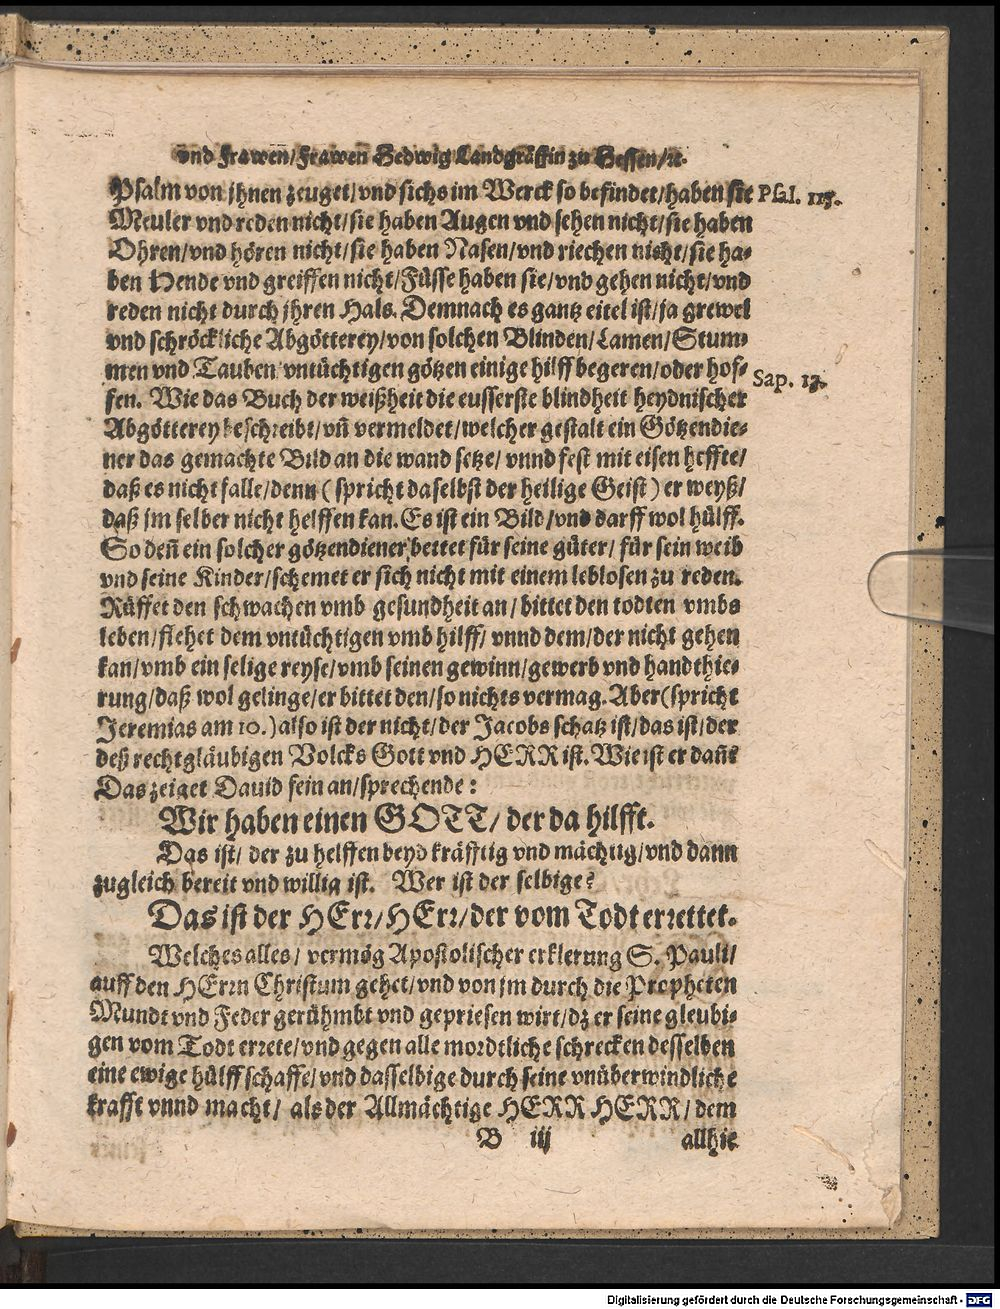 vnd Frawen/Frawen Hedwig Landgräffin zu Hessen/ꝛc.
Psalm von jhnen zeuget/vnd sichs im Werck so befindet/haben sie Psal. 115.
Meuler vnd reden nicht/sie haben Augen vnd sehen nicht/sie haben
Ohren/vnd hören nicht/sie haben Nasen/vnd riechen nicht/sie ha-
ben Hende vnd greiffen nicht/Füsse haben sie/vnd gehen nicht/vnd
reden nicht durch jhren Hals. Demnach es gantz eitel ist/ja grewel
vnd schröckliche Abgötterey/von solchen Blinden/Lamen/Stum-
men vnd Tauben vntüchtigen götzen einige hilff begeren/oder hof-
Sap. 13.
fen. Wie das Buch der weißheit die eusserste blindheit heydnischer
Abgötterey beschreibt/vn̄ vermeldet/welcher gestalt ein Götzendie-
ner das gemachte Bild an die wand setze/ vnnd fest mit eisen heffte/
daß es nicht falle/denn ( spricht daselbst der heilige Geist ) er weyß/
daß jm selber nicht helffen kan. Es ist ein Bild/vnd darff wol hülff.
So den̄ ein solcher götzendiener bettet für seine güter/ für sein weib
vnd seine Kinder/schemet er sich nicht mit einem leblosen zu reden.
Rüffet den schwachen vmb gesundheit an/ bittet den todten vmbs
leben/flehet dem vntüchtigen vmb hilff/ vnnd dem/der nicht gehen
kan/vmb ein selige reyse/vmb seinen gewinn/gewerb vnd handthie-
rung/daß wol gelinge/er bittet den/so nichts vermag. Aber(spricht
Jeremias am 10.)also ist der nicht/der Jacobs schatz ist/das ist/der
deß rechtgläubigen Volcks Gott vnd HERR ist. Wie ist er dan̄?
Das zeiget Dauid fein an/sprechende:
Wir haben einen GOTT/ der da hilfft.
Das ist/ der zu helffen beyd kräfftig vnd mächtig/vnd dann
zugleich bereit vnd willig ist. Wer ist der selbige?
Das ist der HErr/HErr/der vom Todt errettet.
Welches alles/ vermög Apostolischer erklerung S. Pauli/
auff den HErrn Christum gehet/vnd von jm durch die Propheten
Mundt vnd Feder gerühmbt vnd gepriesen wirt/dz er seine gleubi-
gen vom Todt errete/vnd gegen alle mordtliche schrecken desselben
eine ewige hülff schaffe/vnd dasselbige durch seine vnüberwindliche
krafft vnnd macht/ als der Allmächtige HERR HERR/ dem
B iij allhie
Digitalisierung gefördert durch die Deutsche Forschungsgemeinschaft - DFG